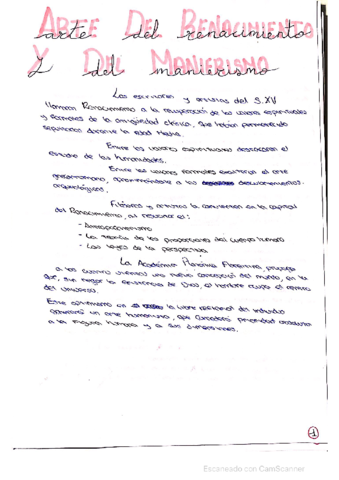 ARTE DEL RENACIMIENTO
Y DEL MANIERISMO
Los escritores y artistas del S.XV
llamaron Renacimiento a la recuperación de los valores espirituales
y formales de la antigüedad clásica, que habían permanecido
sepultados durante la edad Media.
Entre los valores espirituales destacaron el
estudio de las humanidades.
Entre los valores formales el arte
grecorromano, a los descubrimientos
arqueológicos.
Filósofos y artistas la convierten en la capital
del Renacimiento, al rescatar el:
- Antropocentrismo
- La teoría de las proporciones del cuerpo humano
- Las leyes de la perspectiva.
La Académia Platónica Florentina, propaga
a los cuatro vientos una nueva concepción del mundo, en la
que, sin negar la existencia de Dios, el hombre ocupa el centro
del universo.
Este la libre del individuo
un arte humanista, que concederá prioridad absoluta
a la figura humana y a sus dimensiones.
1
Escaneado con CamScanner